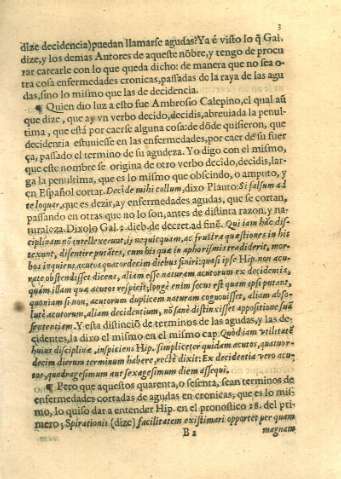 3
dize decidencia) puedan llamarse agudas? Ya é visto lo q̃ Gal.
dize, y los demas Autores de aqueste nõbre, y tengo de procu
rar carearle con lo que queda dicho: de manera que no sea o-
tra cosa enfermedades cronicas, passadas de la raya de las agu
das, sino lo mismo que las de decidencia.
¶ Quien dio luz a esto fue Ambrosio Calepino, el qual aũ
que dize, que ay vn verbo decido, decidis, abreuiada la penul-
tima, que está por caerse alguna cosa: de dõde quisieron, que
decidentia estuuiesse en las enfermedades, por caer de su fuer
ça, passado el termino de su agudeza. Yo digo con el mismo,
que este nombre se origina de otro verbo decido, decidis, lar-
ga la penultima, que es lo mismo que obscindo, o amputo, y
en Español cortar. Decide mihi collum, dixo Plauto: Si falsum ad
te loquer, que es dezir, ay enfermedades agudas, que se cortan,
passando en otras que no lo son, antes de distinta razon, y na-
turaleza. Dixolo Gal. 2. dieb. decret. ad finẽ. Qui iam hãc dis-
ciplinam nõ intellexerunt, ij nequicquam, ac frustra quæstiones in his
texunt, disentire putãtes, cum his quæ in aphorismis tradiderit, mor-
bos inquiens acutos quatuordecim diebus finiri: quasi ipse Hip. non acu-
tè ostendisset dicens, aliam esse naturam acutorum ex decidentia,
quàm illam quæ acutos respicit, longè enim secus est quam ipsi putant,
quoniam si non, acutorum duplicem naturam cognouisset, aliam abso-
lutè acutorum, aliam decidentium, nõ sanè distinxisset appositione suã
sententiam. Y esta distinciõ de terminos de las agudas, y las de-
cidentes, la dixo el mismo en el mismo cap. Quòd iam vtilitatẽ
huius disciplinæ, inspiciens Hip. simpliciter quidem acutos, quatuor-
decim dierum terminum habere, rectè dixit: Ex decidentia vero acu-
tos, quadragesimum aut sexagesimum diem assequi.
¶ Pero que aquestos quarenta, o sesenta, sean terminos de
enfermedades cortadas de agudas en cronicas, que es lo mis-
mo, lo quiso dar a entender Hip. en el pronostico 28. del pri-
mero; Spirationis (dize) facilitatem existimari oportet per quam
B 2 magnam